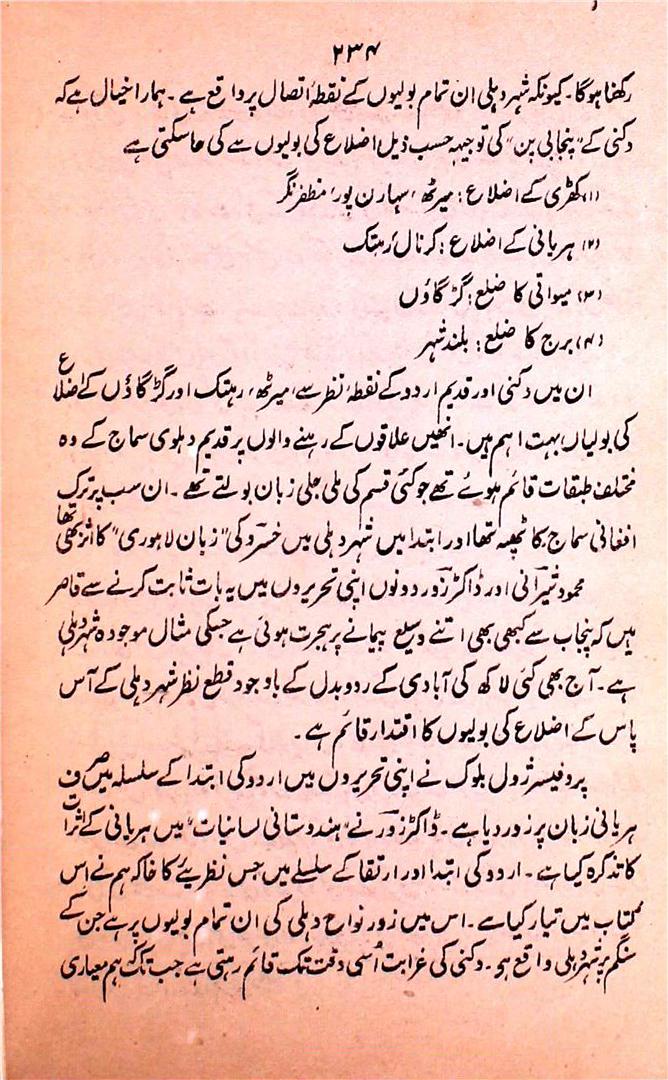 ۲۳۴
رکھنا ہوگا۔ کیونکہ شہر دہلی ان تمام بولیوں کے نقطۂ اتصال پر واقع ہے۔ ہمارا خیال ہے کہ
دکنی کے "پنجابی پن" کی توجیہہ حسب ذیل اضلاع کی بولیوں سے کی جاسکتی ہے
(۱) کھڑی کے اضلاع: میرٹھ، سہارن پور، مظفرنگر
(۲) ہریانی کے اضلاع: کرنال، رہتک
(۳) میواتی کا ضلع: گڑگاؤں
(۴) برج کا ضلع: بلند شہر
ان میں دکنی اور قدیم اردو کے نقطۂ نظر سے، میرٹھ، رہتک اور گڑگاؤں کے اضلاع
کی بولیاں بہت اہم ہیں۔ انھیں علاقوں کے رہنے والوں پر قدیم دہلوی سماج کے وہ
مختلف طبقات قائم ہوئے تھے جو کئی قسم کی ملی جلی زبان بولتے تھے۔ ان سب پر ترک
افغانی سماج کا ٹھپہ تھا اور ابتدا میں شہر دہلی میں خسرو کی "زبان لاہوری" کا اثر بھی تھا
محمود شیرانی اور ڈاکٹر زور دونوں اپنی تحریروں میں یہ بات ثابت کرنے سے قاصر
ہیں کہ پنجاب سے کبھی بھی اتنے وسیع پیمانے پر ہجرت ہوئی ہے جسکی مثال موجودہ شہر دہلی
ہے۔ آج بھی کئی لاکھ کی آبادی کے ردوبدل کے باوجود قطع نظر شہر دہلی کے آس
پاس کے اضلاع کی بولیوں کا اقتدار قائم ہے۔
پروفیسر ژول بلوک نے اپنی تحریروں میں اردو کی ابتدا کے سلسلہ میں صرف
ہریانی زبان پر زور دیا ہے۔ ڈاکٹر زور نے "ہندوستانی لسانیات" میں ہریانی کے اثرات
کا تذکرہ کیا ہے۔ اردو کی ابتدا اور ارتقا کے سلسلے میں جس نظریئے کا خاکہ ہم نے اس
کتاب میں تیار کیا ہے۔ اس میں زور نواح دہلی کی ان تمام بولیوں پر ہے جن کے
سنگم پر شہر دہلی واقع ہو۔ دکنی کی غرابت اُسی وقت تک قائم رہتی ہے جب تک کہ ہم معیاری